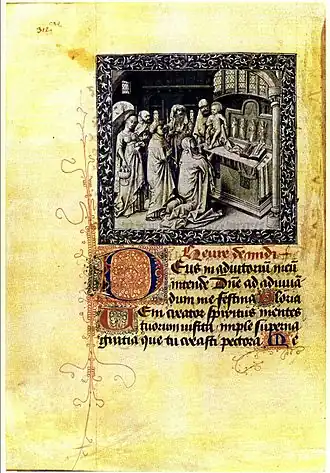 Heure de midi
Deus in adiutoriu meu
intende Dne ad adiuua
dum me festina Gloria
Em creator spiritus mentes
tuorum visita imple superna
gratia que tu creasti pectora Me